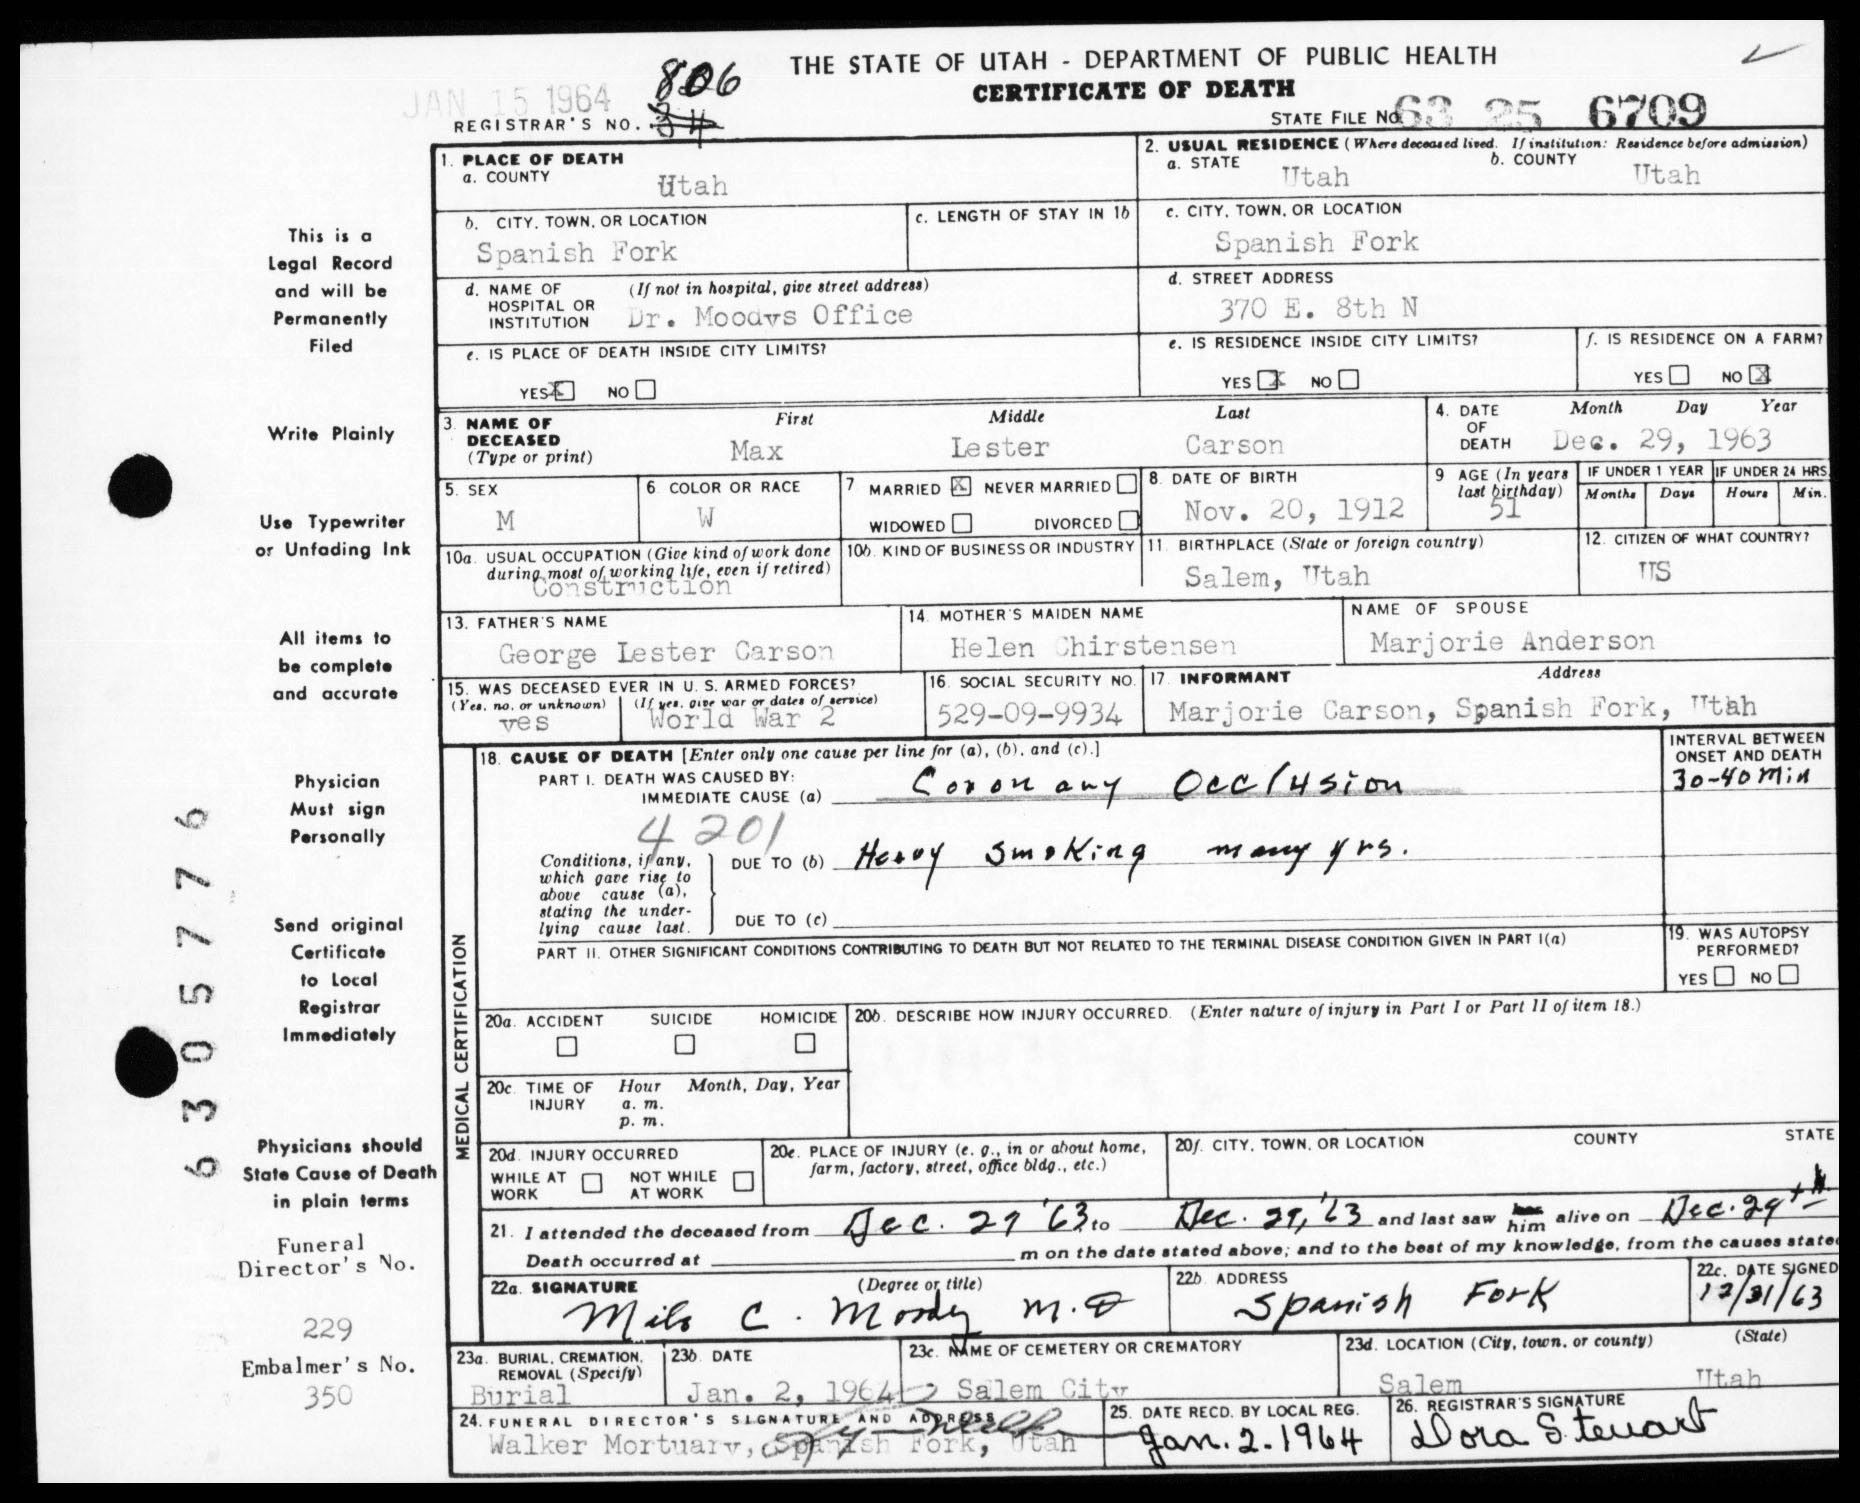 THE STATE OF UTAH - DEPARTMENT OF PUBLIC HEALTH
CERTIFICATE OF DEATH
JAN 15 1964
806
REGISTRAR'S NO. 34
STATE FILE NO. 63 25 6709
This is a
Legal Record
and will be
Permanently
Filed
Write Plainly
Use Typewriter
or Unfading Ink
All items to
be complete
and accurate
Physician
Must sign
Personally
Send original
Certificate
to Local
Registrar
Immediately
Physicians should
State Cause of Death
in plain terms
Funeral
Director's No.
229
Embalmer's No.
350
6305776
1. PLACE OF DEATH
a. COUNTY
Utah
2. USUAL RESIDENCE (Where deceased lived. If institution: Residence before admission)
a. STATE Utah
b. COUNTY Utah
b. CITY, TOWN, OR LOCATION
Spanish Fork
c. LENGTH OF STAY IN 1b
c. CITY, TOWN, OR LOCATION
Spanish Fork
d. NAME OF HOSPITAL OR INSTITUTION (If not in hospital, give street address)
Dr. Moodys Office
d. STREET ADDRESS
370 E. 8th N
e. IS PLACE OF DEATH INSIDE CITY LIMITS?
YES X NO
e. IS RESIDENCE INSIDE CITY LIMITS?
YES X NO
f. IS RESIDENCE ON A FARM?
YES NO X
3. NAME OF DECEASED (Type or print)
First Middle Last
Max Lester Carson
4. DATE OF DEATH
Month Day Year
Dec. 29, 1963
5. SEX
M
6. COLOR OR RACE
W
7 MARRIED X NEVER MARRIED
WIDOWED DIVORCED
8. DATE OF BIRTH
Nov. 20, 1912
9 AGE (In years last birthday)
51
IF UNDER 1 YEAR
Months Days
IF UNDER 24 HRS.
Hours Min.
10a. USUAL OCCUPATION (Give kind of work done during most of working life, even if retired)
Construction
10b. KIND OF BUSINESS OR INDUSTRY
11. BIRTHPLACE (State or foreign country)
Salem, Utah
12. CITIZEN OF WHAT COUNTRY?
US
13. FATHER'S NAME
George Lester Carson
14. MOTHER'S MAIDEN NAME
Helen Chirstensen
NAME OF SPOUSE
Marjorie Anderson
15. WAS DECEASED EVER IN U. S. ARMED FORCES?
(Yes, no, or unknown) (If yes, give war or dates of service)
yes World War 2
16. SOCIAL SECURITY NO.
529-09-9934
17. INFORMANT Address
Marjorie Carson, Spanish Fork, Utah
MEDICAL CERTIFICATION
18. CAUSE OF DEATH [Enter only one cause per line for (a), (b), and (c).]
PART I. DEATH WAS CAUSED BY:
IMMEDIATE CAUSE (a) Coronary Occlusion
INTERVAL BETWEEN ONSET AND DEATH
30-40 Min
4201
Conditions, if any, which gave rise to above cause (a), stating the underlying cause last.
DUE TO (b) Heavy Smoking many yrs.
DUE TO (c)
PART II. OTHER SIGNIFICANT CONDITIONS CONTRIBUTING TO DEATH BUT NOT RELATED TO THE TERMINAL DISEASE CONDITION GIVEN IN PART I(a)
19. WAS AUTOPSY PERFORMED?
YES NO
20a. ACCIDENT SUICIDE HOMICIDE
20b. DESCRIBE HOW INJURY OCCURRED. (Enter nature of injury in Part I or Part II of item 18.)
20c. TIME OF INJURY Hour Month, Day, Year
a. m.
p. m.
20d. INJURY OCCURRED
WHILE AT WORK NOT WHILE AT WORK
20e. PLACE OF INJURY (e. g., in or about home, farm, factory, street, office bldg., etc.)
20f. CITY, TOWN, OR LOCATION COUNTY STATE
21. I attended the deceased from Dec. 29 '63 to Dec. 29, '63 and last saw him alive on Dec. 29th
Death occurred at m on the date stated above; and to the best of my knowledge, from the causes state
22a. SIGNATURE (Degree or title)
Milo C. Moody M.D
22b. ADDRESS
Spanish Fork
22c. DATE SIGNED
12/31/63
23a. BURIAL, CREMATION, REMOVAL (Specify)
Burial
23b. DATE
Jan. 2, 1964
23c. NAME OF CEMETERY OR CREMATORY
Salem City
23d. LOCATION (City, town, or county) (State)
Salem Utah
24. FUNERAL DIRECTOR'S SIGNATURE AND ADDRESS
Walker Mortuary, Spanish Fork, Utah
25. DATE RECD. BY LOCAL REG.
Jan. 2. 1964
26. REGISTRAR'S SIGNATURE
Dora Stewart